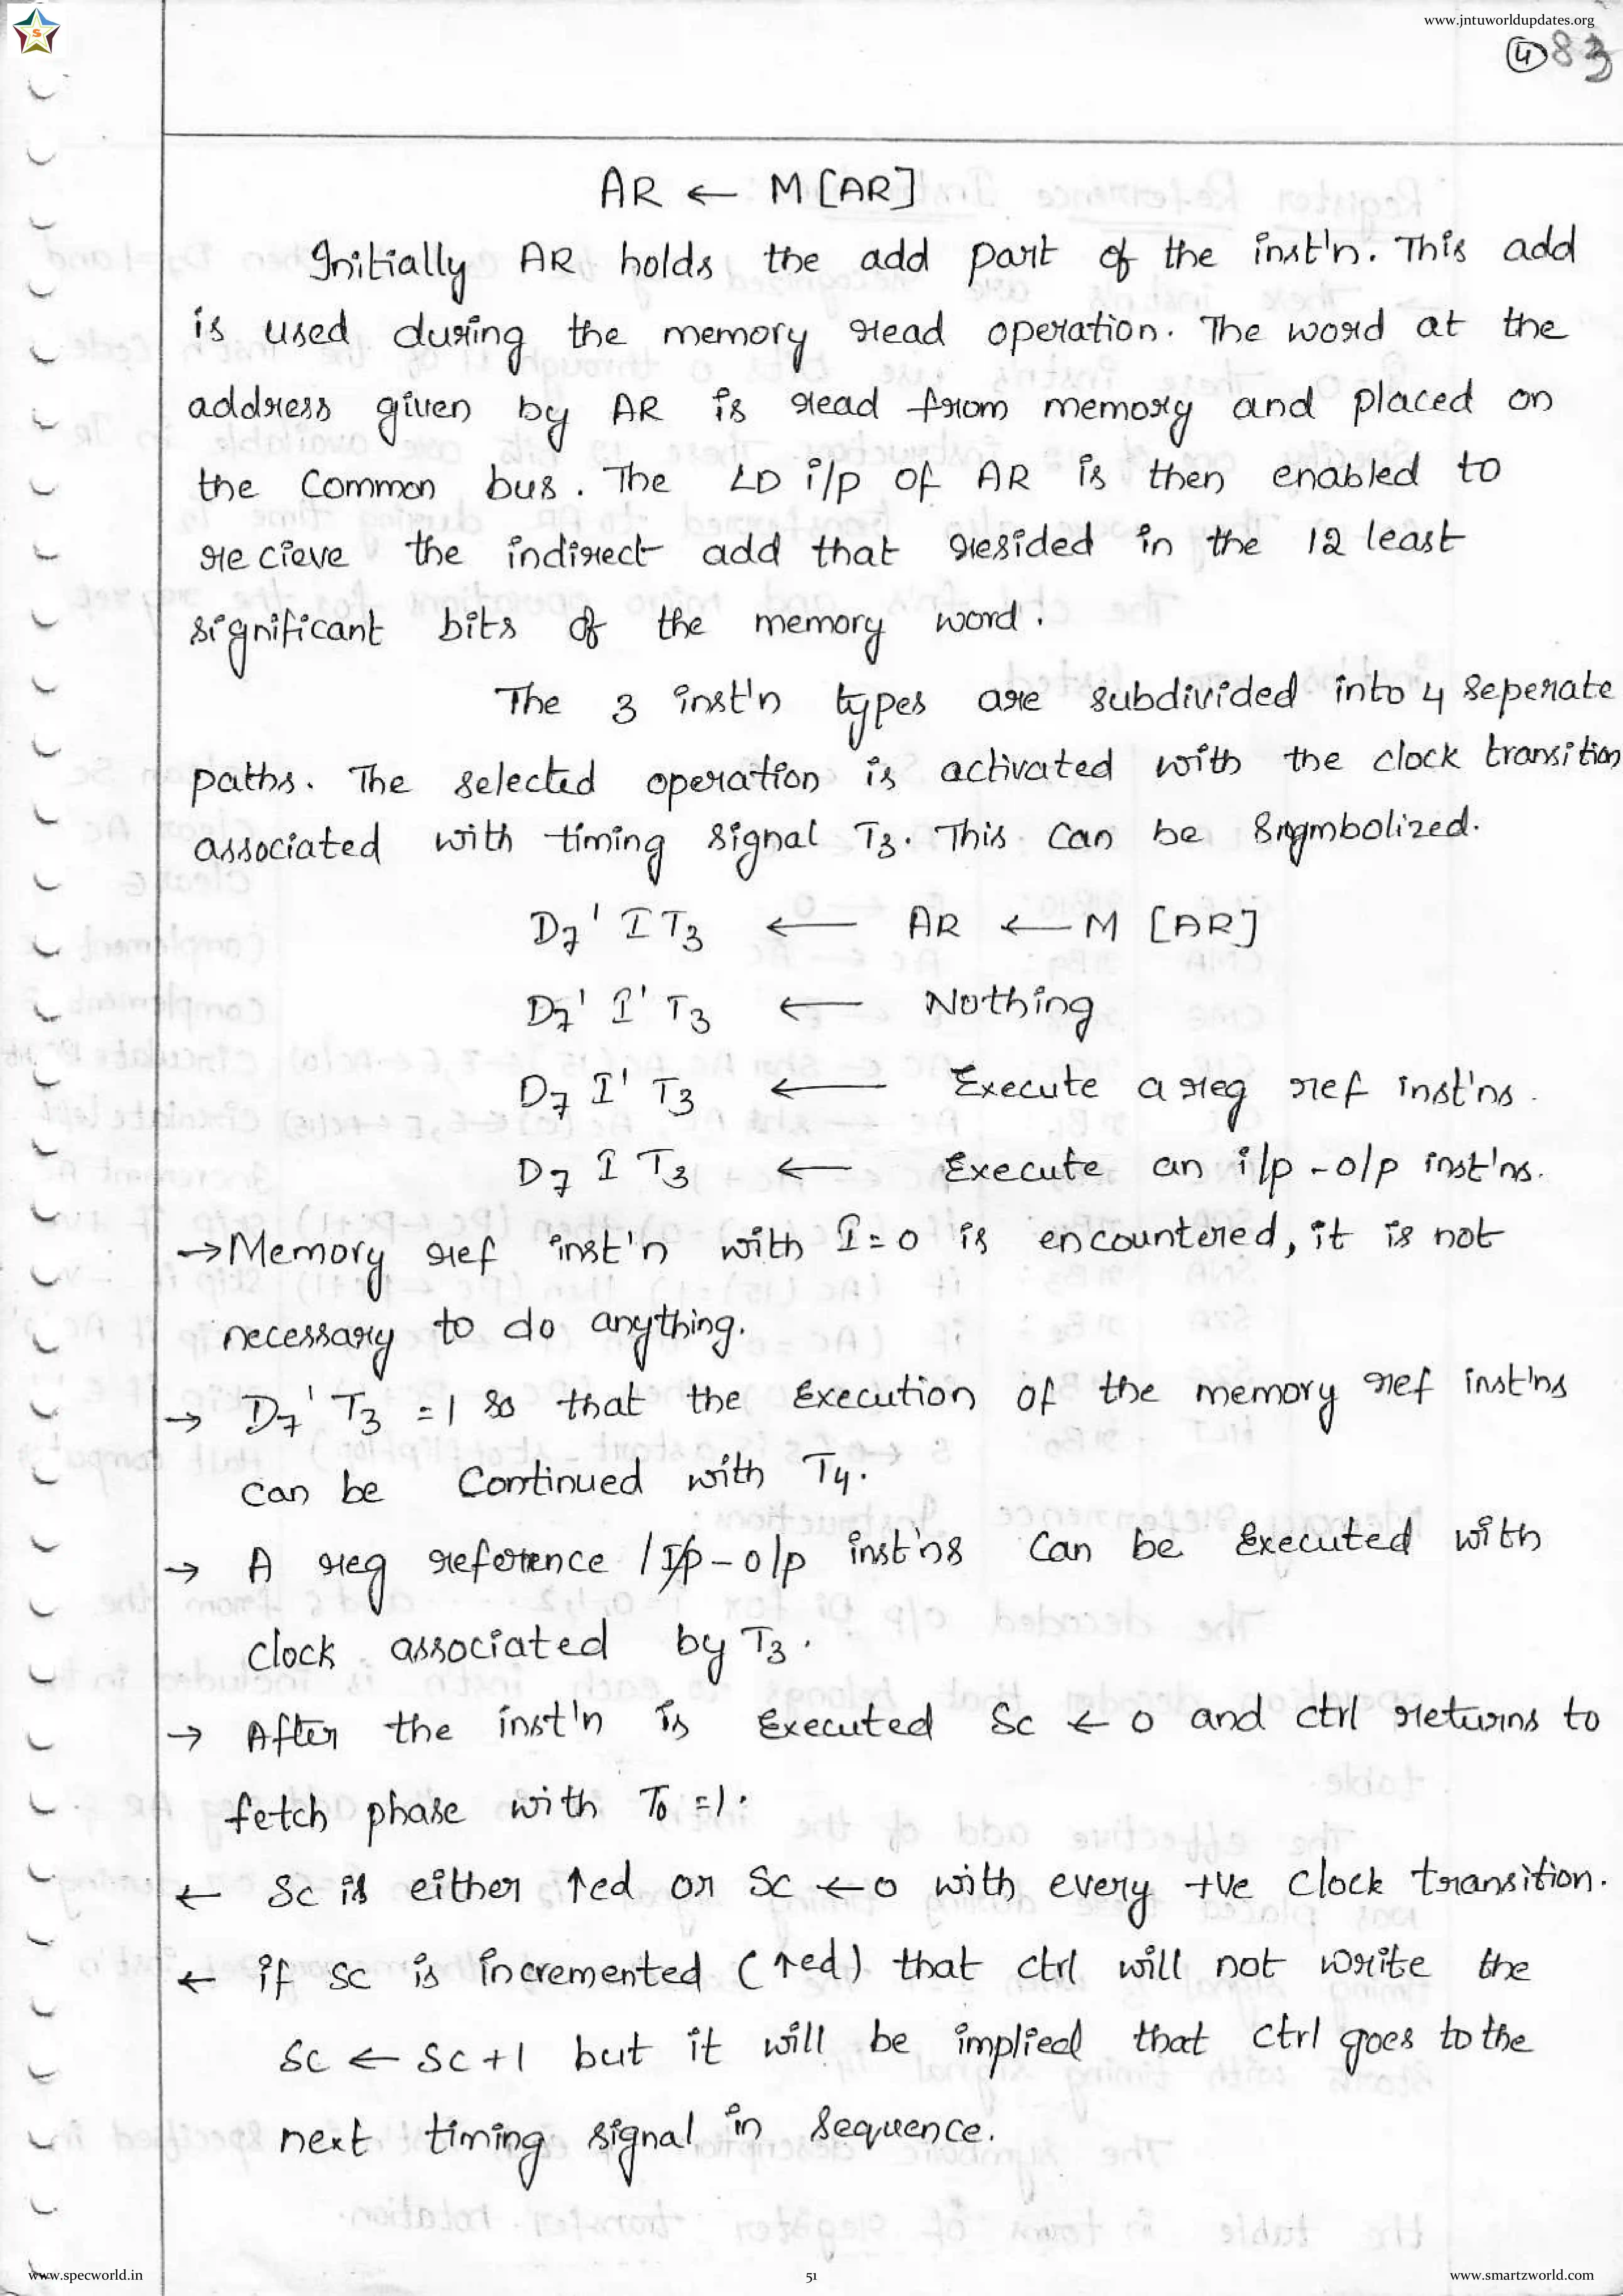 www.jntuworldupdates.org
S
4 83
AR ← M [AR]
Initially AR holds the add part of the inst'n. This add
is used during the memory read operation. The word at the
address given by AR is read from memory and placed on
the Common bus. The LD i/p of AR is then enabled to
recieve the indirect add that resided in the 12 least
significant bits of the memory word.
The 3 inst'n types are subdivided into 4 seperate
paths. The selected operation is activated with the clock transition
associated with timing signal T3. This can be symbolized.
D7' I T3 ← AR ← M [AR]
D7' I' T3 ← Nothing
D7 I' T3 ← Execute a reg ref inst'ns.
D7 I T3 ← Execute an i/p - o/p inst'ns.
→ Memory ref inst'n with I=0 is encountered, it is not
necessary to do anything.
→ D7' T3 = 1 so that the Execution of the memory ref inst'ns
can be Continued with T4.
→ A reg reference / I/p - o/p inst'ns Can be Executed with
clock associated by T3.
→ After the inst'n is Executed Sc ← 0 and ctrl returns to
fetch phase with T0 = 1.
← Sc is either ↑ed or Sc ← 0 with every +ve clock transition.
← if SC is incremented (↑ed) that ctrl will not write the
Sc ← Sc + 1 but it will be implied that ctrl goes to the
next timing signal in Sequence.
www.specworld.in
51
www.smartzworld.com